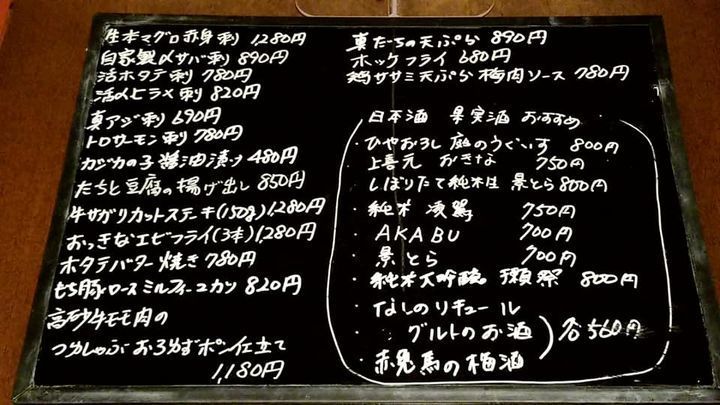 生本マグロ赤身刺 1,280円
自家製〆サバ刺 890円
活ホタテ刺 780円
活〆ヒラメ刺 820円
真アジ刺 690円
トロサーモン刺 780円
カジカの子醤油漬け 480円
たちと豆腐の揚げ出し 850円
牛サガリカットステーキ(150g)1,280円
おっきなエビフライ(3本)1,280円
ホタテバター焼き 780円
もち豚ロースミルフィーユカツ 820円
高砂牛モモ肉の
つめしゃぶ おろしゆずポン仕立て
1,180円
真だちの天ぷら 890円
ホッケフライ 680円
鶏ササミ天ぷら梅肉ソース 780円
日本酒 果実酒 おすすめ
・ひやおろし 庭のうぐいす 800円
・上喜元 おきな 750円
・しぼりたて純米生 景とら 800円
・純米 凌駕 750円
・AKABU 700円
・景とら 700円
・純米大吟醸 獺祭 800円
・なしのリキュール
・グルトのお酒
・赤兎馬の梅酒
各560円